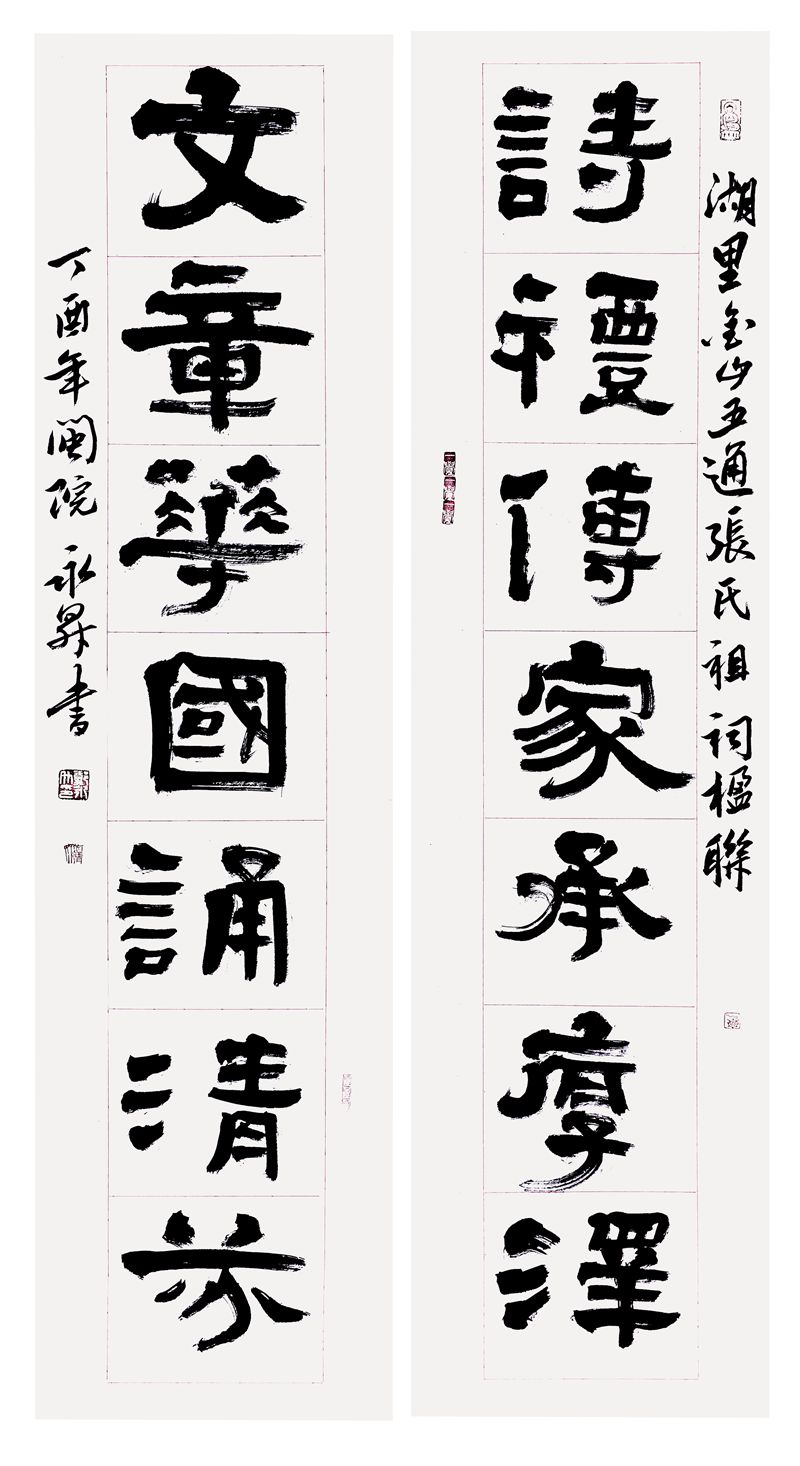 湖里金山五通張氏祖祠楹聯
詩禮傳家承厚澤
文章華國誦清芬
丁酉年閩院 永昇書